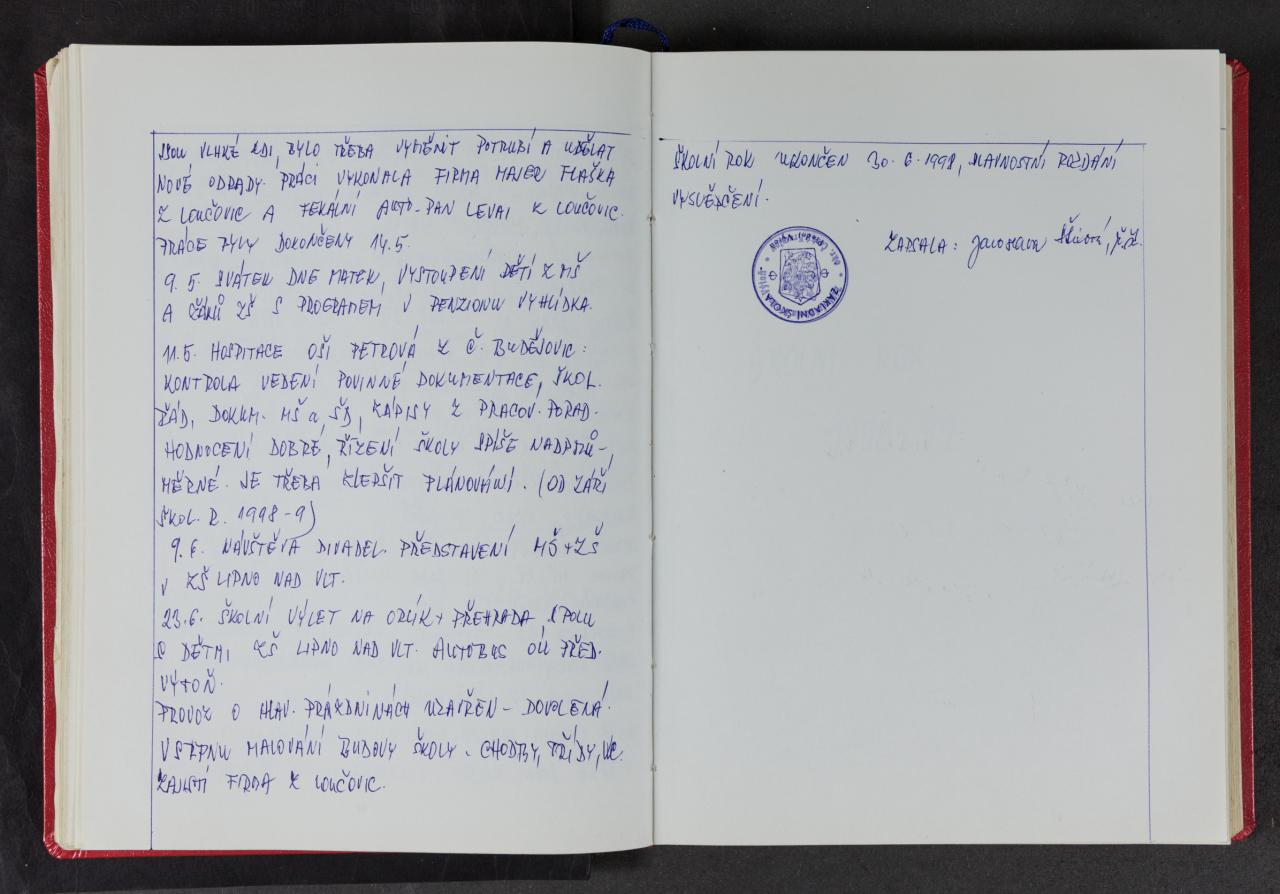 JSOU VLHKÉ ZDI, BYLO TŘEBA VYMĚNIT POTRUBÍ A UDĚLAT
NOVÉ ODPADY. PRÁCI VYKONALA FIRMA MAJER FLAŠKA
Z LOUČOVIC A FEKÁLNÍ AUTO - PAN LEVAI Z LOUČOVIC.
PRÁCE BYLY DOKONČENY 14.5.
9. 5. SVÁTEK DNE MATEK, VYSTOUPENÍ DĚTÍ Z MŠ
A ŽÁKŮ ZŠ S PROGRAMEM V PENZIONU VYHLÍDKA.
11.5. HOSPITACE OŠI PETROVÁ Z Č. BUDĚJOVIC:
KONTROLA VEDENÍ POVINNÉ DOKUMENTACE, ŠKOL.
ŘÁD, DOKUM. MŠ a ŠD, ZÁPISY Z PRACOV. PORAD.
HODNOCENÍ DOBRÉ, ŘÍZENÍ ŠKOLY SPÍŠE NADPRŮ-
MĚRNÉ. JE TŘEBA ZLEPŠIT PLÁNOVÁNÍ. (OD ZÁŘÍ
ŠKOL. R. 1998-9)
9.6. NÁVŠTĚVA DIVADEL. PŘEDSTAVENÍ MŠ+ZŠ
V ZŠ LIPNO NAD VLT.
23.6. ŠKOLNÍ VÝLET NA ORLÍK + PŘEHRADA, SPOLU
S DĚTMI ZŠ LIPNO NAD VLT. AUTOBUS OÚ PŘED.
VÝTOŇ.
PROVOZ O HLAV. PRÁZDNINÁCH UZAVŘEN - DOVOLENÁ.
V SRPNU MALOVÁNÍ BUDOVY ŠKOLY - CHODBY, TŘÍDY, WC.
ZAJISTÍ FIRMA Z LOUČOVIC.
ŠKOLNÍ ROK UKONČEN 30.6.1998, SLAVNOSTNÍ ROZDÁNÍ
VYSVĚDČENÍ.
ZAPSALA: Jaroslava
ZÁKLADNÍ ŠKOLA